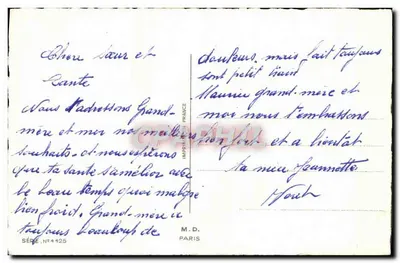 Chère sœur et
tante
Nous t'adressons Grand-
mère et moi nos meilleurs
souhaits et nous espérons
que ta santé s'améliore avec
le beau temps quoi malgré
bien froid. Grand-mère a
toujours beaucoup de
SÉRIE N° 425
M. D.
PARIS
douleurs, mais fait toujours
son petit train
Maurice grand-mère et
moi nous t'embrassons
bien fort et a bientôt
ta nièce Jeannette